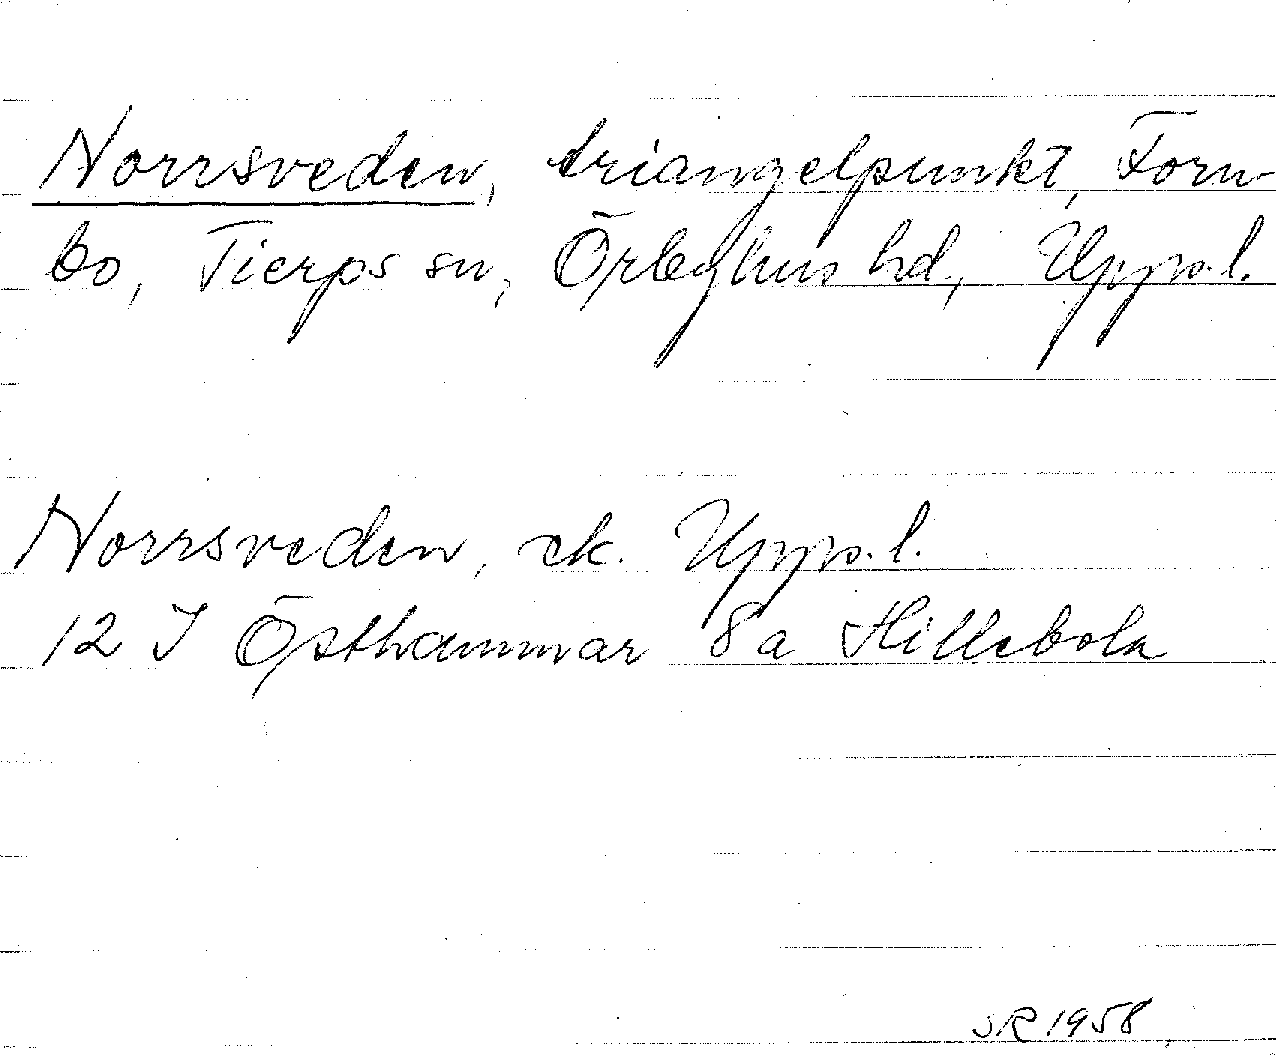 Norrsveden, triangelpunkt, Forn-
bo, Tierps sn, Örbyhus hd, Uppl.
Norrsveden, ek. Uppl.
12 I Östhammar 8a Hillebola
SR 1958